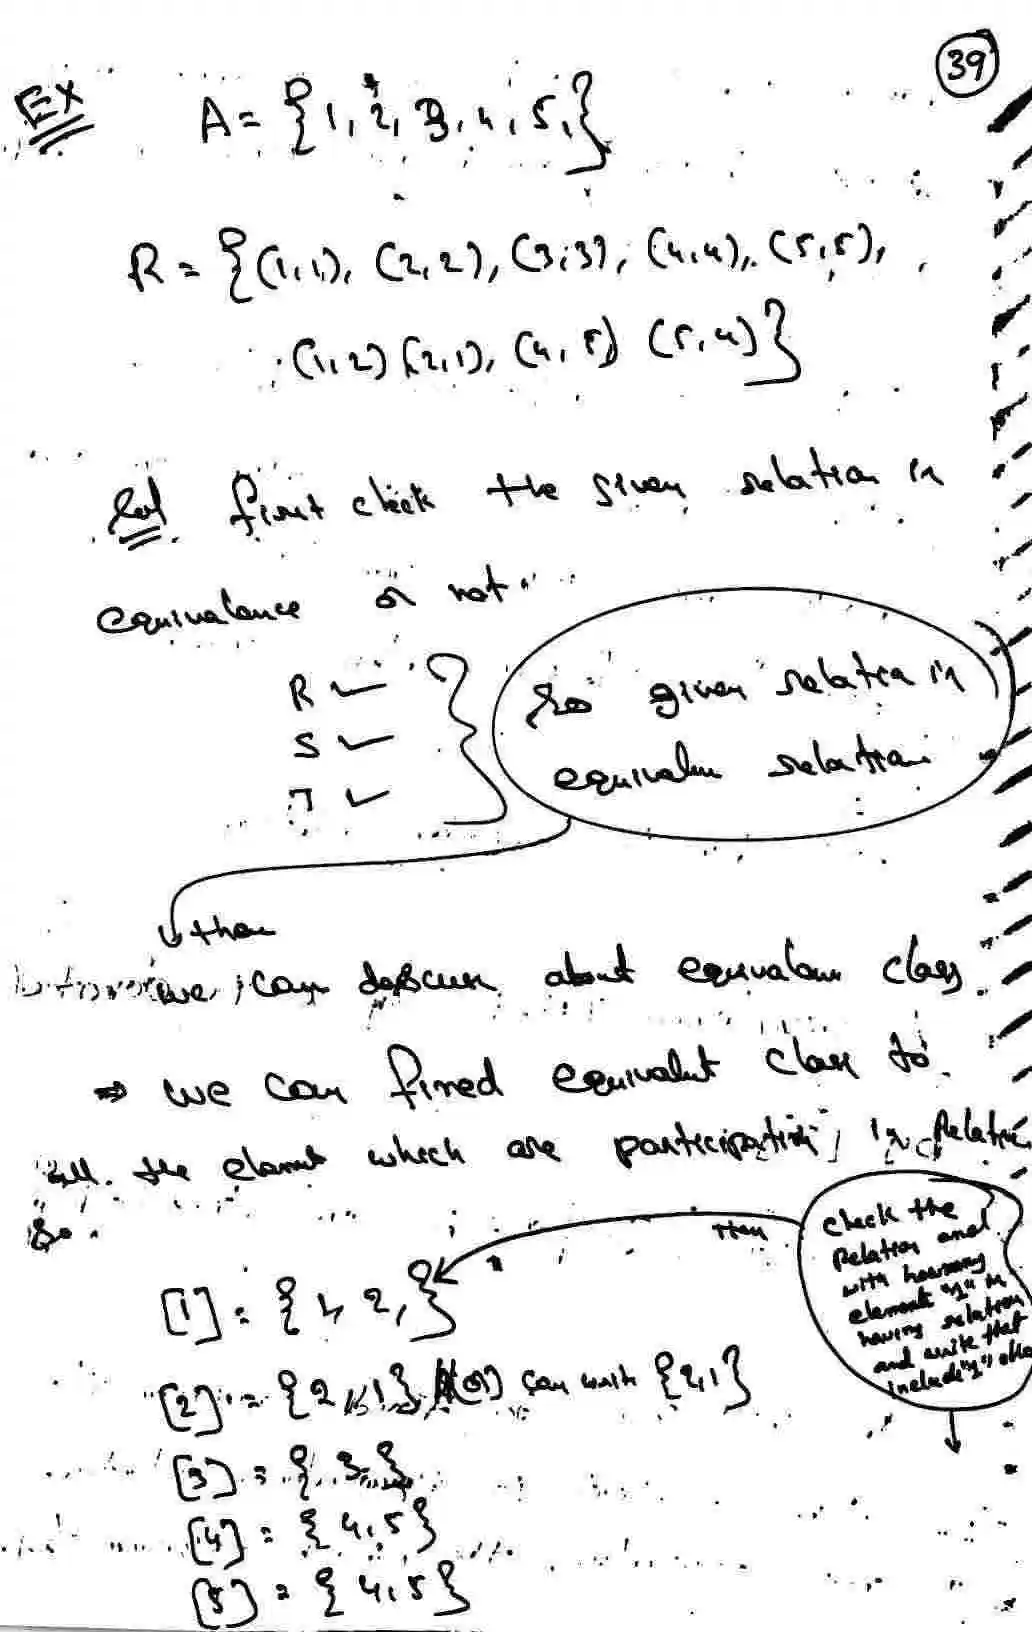 39
Ex A = {1, 2, 3, 4, 5,}
R = {(1,1), (2,2), (3,3), (4,4), (5,5),
(1,2) (2,1), (4,5) (5,4)}
Sol first check the given relation is
equivalance or not
R ✓
S ✓
T ✓
So given relation is
equivalen relation
then
we can discuss about equivalen class
⇒ we can fined equivalent class to
all the elemnt which are participating in Relation
So
then
check the
Relation and
with
element "1" is
having relation
and write that
include "1" also
[1] = {1, 2,}
[2] = {2, 1} (or) can write {2,1}
[3] = {3}
[4] = {4,5}
[5] = {4,5}